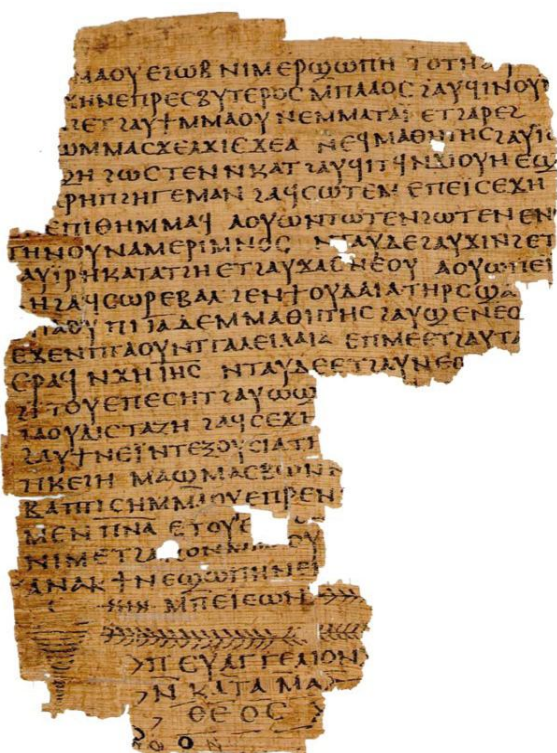 ⲙⲁⲟⲩ ⲉϩⲱⲃ ⲛⲓⲙ ⲉⲣϣⲱⲡⲏ ⲧⲟⲧⲏ ϩⲁⲩ
ⲭⲏ ⲛⲉⲡⲣⲉⲥⲃⲩⲧⲉⲣⲟⲥ ⲙⲡⲗⲁⲟⲥ ϩⲁⲩϥⲓ ⲛⲟⲩ
ϩⲉⲧ ϩⲁⲩϯ ⲙⲙⲁⲟⲩ ⲛⲉⲙⲙⲁⲧⲁⲓ̈ ⲉⲧϩⲁⲣⲉϩ
ⲱⲙⲙⲁⲥ ϫⲉ ⲁϫⲓⲉⲥ ϫⲉ ⲁ ⲛⲉϥⲙⲁⲑⲏⲧⲏⲥ ϩⲁⲩⲓ
ϣⲏ ϩⲱⲥ ⲧⲉⲛⲛⲕⲁⲧ ϩⲁⲩϥⲓⲧϥ ⲛϫⲓⲟⲩⲏ ⲉϣ
ⲣⲏ ⲡϩⲏⲅⲉⲙⲁⲛ ϩⲁϥⲥⲱⲧⲉⲙ ⲉⲡⲉⲓⲥⲉϫⲏ
ⲉⲡⲓⲑⲏ ⲙⲙⲁϥ ⲁⲟⲩⲱ ⲛⲧⲱⲧⲉⲛ ϩⲱⲧⲉⲛ ⲉⲛ
ⲧⲏⲛⲟⲩ ⲛⲁⲙⲉⲣⲓⲙⲛⲟⲥ ⲛⲧⲁⲩ ⲇⲉ ϩⲁⲩϫⲓ ⲛϩⲉⲧ
ⲁⲩⲓⲣⲏ ⲕⲁⲧⲁ ⲧϩⲏ ⲉⲧϩⲁⲩϫⲁⲥ ⲛⲉⲟⲩ ⲁⲟⲩⲱ ⲡⲉⲓ
ⲏ ϩⲁϥⲥⲱⲣ ⲉⲃⲁⲗ ϩⲉⲛ ϯⲟⲩⲇⲁⲓⲁ ⲧⲏⲣⲥ ϣⲁ
ⲡⲓⲓ̅ⲁ̅ ⲇⲉ ⲙⲙⲁⲑⲏⲧⲏⲥ ϩⲁⲩϣⲉ ⲛⲉⲟ
ⲉϫⲉⲛ ⲡⲧⲁⲟⲩ ⲛⲧⲅⲁⲗⲉⲓⲗⲁⲓⲁ ⲉⲡⲙⲉ ⲉⲧϩⲁⲩⲧⲁ
ⲉⲣⲁϥ ⲛϫⲏ ⲓⲏ̅ⲥ̅ ⲛⲧⲁⲩ ⲇⲉ ⲉⲧϩⲁⲩⲛⲉⲟ
ϩⲓⲧⲟⲩ ⲉⲡⲉⲥⲏⲧ ϩⲁⲩⲟⲩⲱ
ϩⲁⲟⲩⲇⲓⲥⲧⲁⲍⲏ ϩⲁϥⲥⲉϫⲓ
ϩⲁⲩϯ ⲛⲉⲓ̈ ⲛⲧⲉⲝⲟⲩⲥⲓⲁ ⲧⲓ
ⲡⲕⲉϩⲏ ⲙⲁϣ ⲙⲁⲥⲃⲱ ⲛ
ⲃⲁⲡⲧⲓⲥⲏ ⲙⲙⲁⲟⲩ ⲉⲡⲣⲉⲛ
ⲙⲉⲛ ⲡⲛ̅ⲁ̅ ⲉⲧⲟⲩⲉ
ⲛⲓⲙ ⲉⲧϩⲁ
ⲁⲛⲁⲕ ϯⲛⲉϣⲱⲡⲏ ⲛⲉ
ⲙⲡⲉⲓⲉⲱⲛ
ⲡⲉⲩⲁⲅⲅⲉⲗⲓⲟⲛ
ⲛⲕⲁⲧⲁ ⲙⲁ
ⲑⲉⲟⲥ